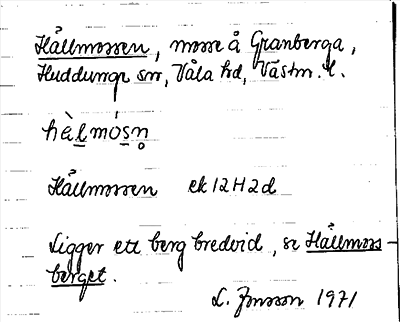 Hållmossen, mosse å Granberga,
Huddunge sn, Våla hd, Västm. l.
hèlmósn̥
Hållmossen ek 12H2d
Ligger ett berg bredvid, se Hållmoss-
berget.
L. Jonsson 1971